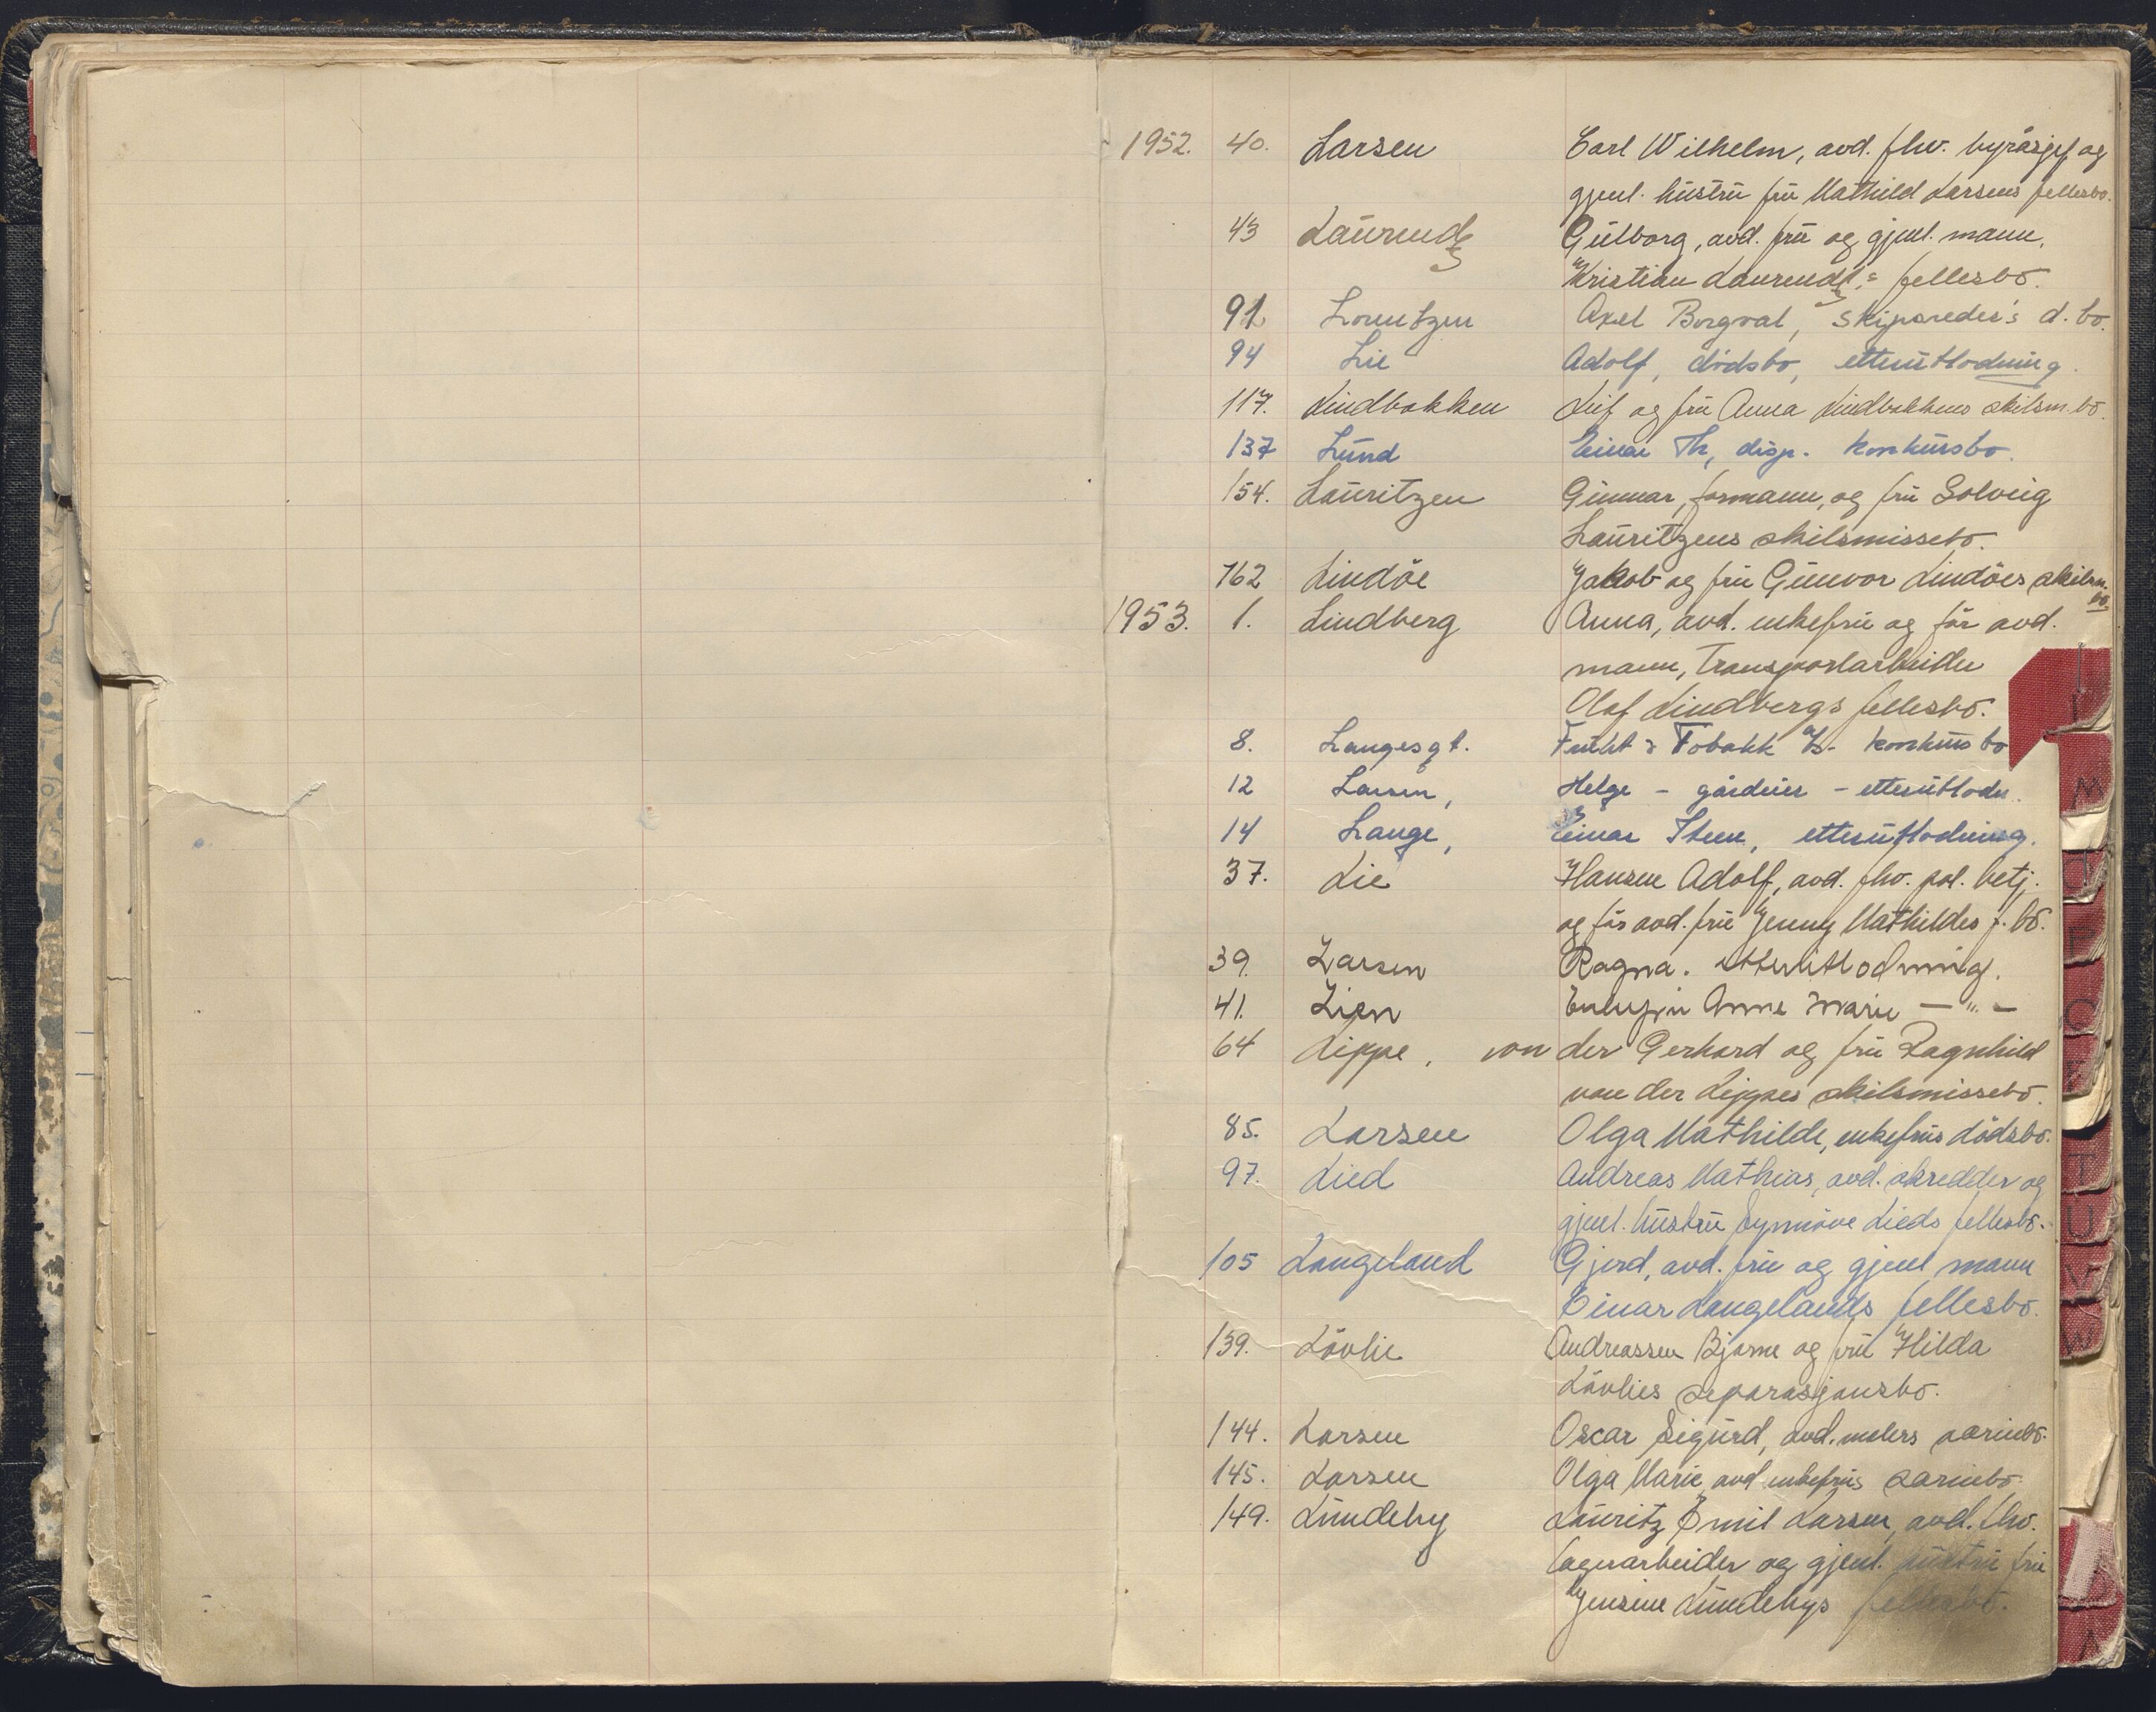 1952. 40. Larsen Carl Wilhelm, avd. fhv. byråsjef og
gjenl. hustru fru Mathild Larsens fellesbo.
43 Laurendz Gulborg, avd. fru og gjenl. mann,
Kristian Laurendz's fellesbo.
91 Lorentzen Axel Borgval, skipsreder's d. bo.
94 Lie Adolf, dödsbo, etterutlodning.
117. Lindbakken Leif og fru Anna Lindbakkens skilsm. bo.
137 Lund Einar Th, disp. konkursbo.
154. Lauritzen Gunnar, formann, og fru Solveig
Lauritzens skilsmissebo.
162 Lindöe Jakob og fru Gunvor Lindöes skilsm.
bo.
1953. 1. Lindberg Anna, avd. enkefru og för avd.
mann, transportarbeider
Olaf Lindbergs fellesbo.
8. Langesgt. Frukt & Tobakk A/S - konkursbo
12 Larsen, Helge - gårdeier - etterutlodn.
14 Lange, Einar Steen, etterutlodning.
37. Lie Hansen Adolf, avd. fhv. pol. betj.
og för avd. fru Jenny Mathildes f. bo.
39. Larsen Ragna. etterutlodning.
41. Lien Enkefru Anne Marie — " —
64 Lippe, von der Gerhard og fru Ragnhild
von der Lippes skilsmissebo.
85. Larsen Olga Mathilde, enkefrus dödsbo.
97. Lied Andreas Mathias, avd. skredder og
gjenl. hustru Synnöve Lieds fellesbo.
105 Langeland Gjerd, avd. fru og gjenl mann
Einar Langelands fellesbo.
139. Lövlie Andreassen Bjarne og fru Hilda
Lövlies separasjonsbo.
144. Larsen Oscar Sigurd, avd. malers særinbo.
145. Larsen Olga Marie, avd enkefrus særinbo.
149. Lundeby Lauritz Emil Larsen, avd. fhv.
lagerarbeider og gjenl. hustru fru
Jensine Lundebys fellesbo.
L
M
O
P
T
U
V
W